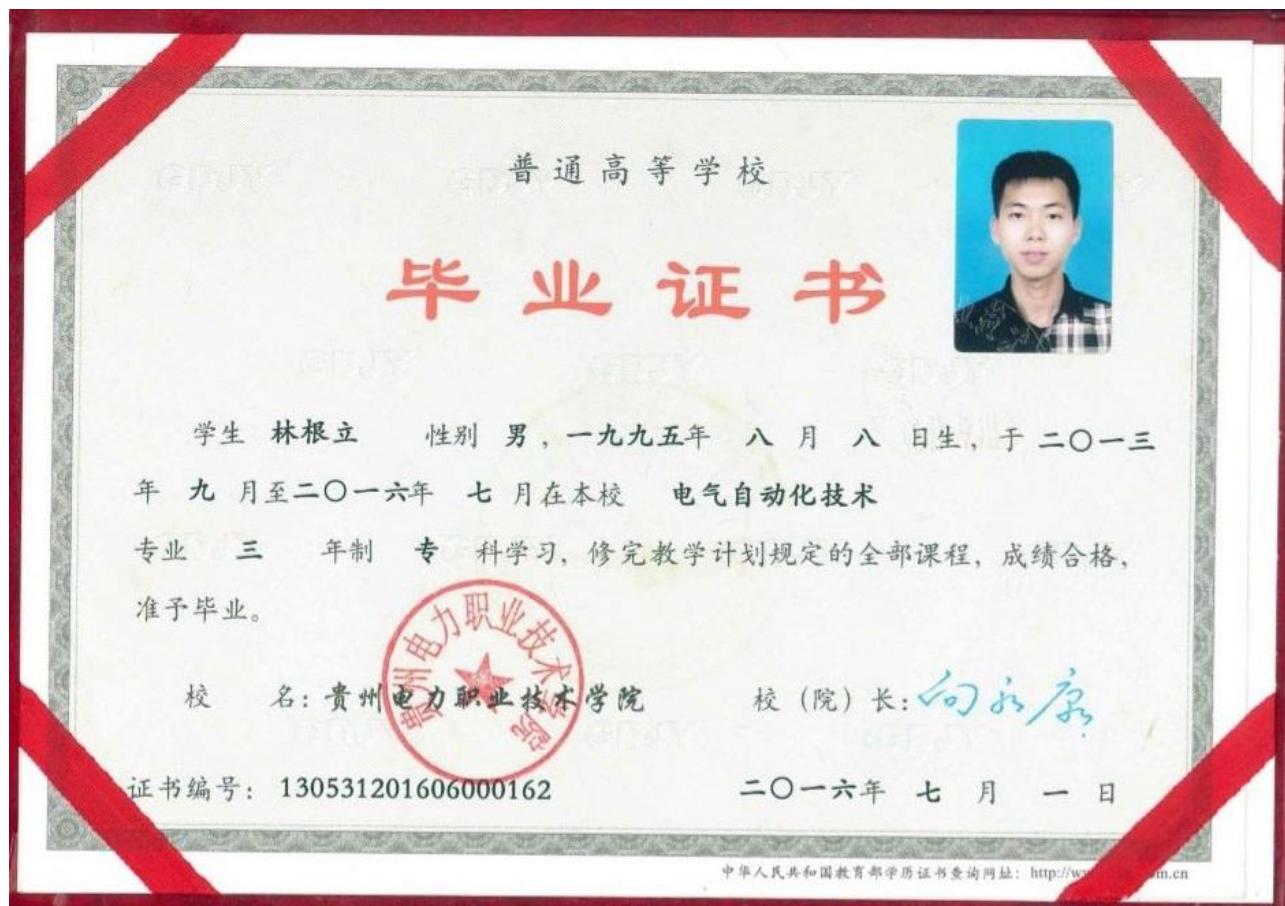 普通高等学校
毕业证书
学生 林根立 性别 男，一九九五年 八 月 八 日生，于 二〇一三
年 九 月至二〇一六年 七 月在本校 电气自动化技术
专业 三 年制 专 科学习，修完教学计划规定的全部课程，成绩合格，
准予毕业。
贵州电力职业技术学院
校 名：贵州电力职业技术学院 校（院）长：向永康
证书编号：130531201606000162 二〇一六年 七 月 一 日
中华人民共和国教育部学历证书查询网址：http://w
m.cn